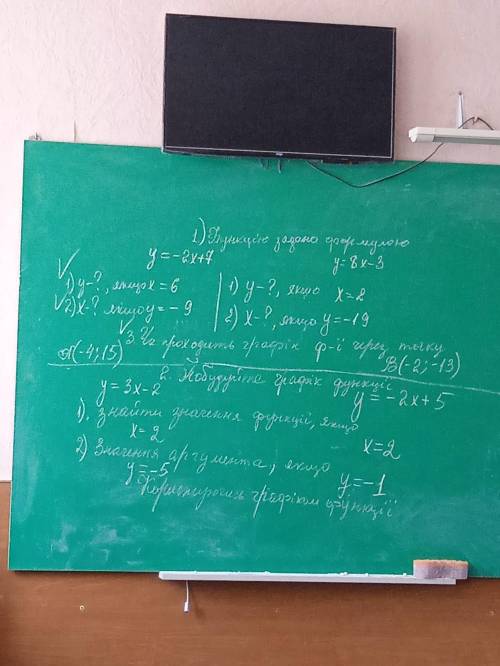 1) Функцію задано формулою
y=-2x+7 y=8x-3
1) y-?, якщо x=6 1) y-?, якщо x=2
2) x-? якщо y=-9 2) x-?, якщо y=-19
3. Чи проходить графік ф-ії через точку
A(-4;15) B(-2;-13)
2. Побудуйте графік функції
y=3x-2 y=-2x+5
1). Знайти значення функції, якщо
x=2 x=2
2) Значення аргумента, якщо
y=-5 y=-1
Користуючись графіком функції